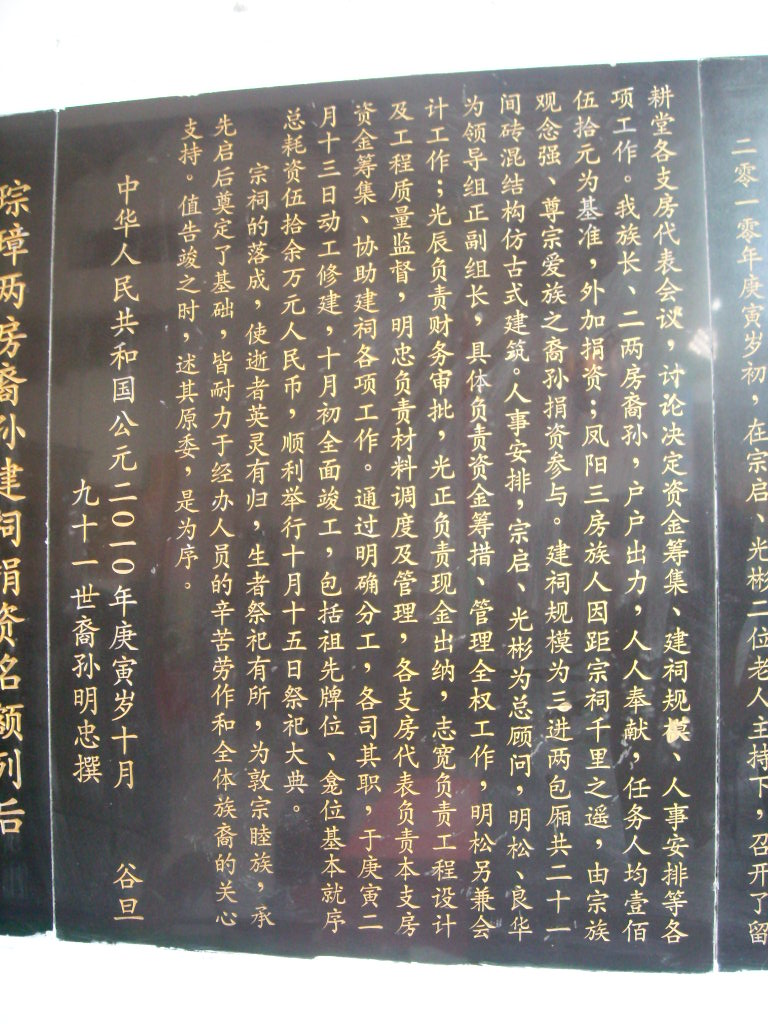 二零一零年庚寅岁初，在宗启、光彬二位老人主持下，召开了留
耕堂各支房代表会议，讨论决定资金筹集、建祠规模、人事安排等各
项工作。我族长、二两房裔孙，户户出力，人人奉献，任务人均壹佰
伍拾元为基准，外加捐资；凤阳三房族人因距宗祠千里之遥，由宗族
观念强、尊宗爱族之裔孙捐资参与。建祠规模为三进两包厢共二十一
间砖混结构仿古式建筑。人事安排，宗启、光彬为总顾问，明松、良华
为领导组正副组长，具体负责资金筹措、管理全权工作，明松另兼会
计工作；光辰负责财务审批，光正负责现金出纳，志宽负责工程设计
及工程质量监督，明忠负责材料调度及管理，各支房代表负责本支房
资金筹集、协助建祠各项工作。通过明确分工，各司其职，于庚寅二
月十三日动工修建，十月初全面竣工，包括祖先牌位、龛位基本就序
总耗资伍拾余万元人民币，顺利举行十月十五日祭祀大典。
宗祠的落成，使逝者英灵有归，生者祭祀有所，为敦宗睦族，承
先启后奠定了基础，皆耐力于经办人员的辛苦劳作和全体族裔的关心
支持。值告竣之时，述其原委，是为序。
中华人民共和国公元二〇一〇年庚寅岁十月 谷旦
九十一世裔孙明忠撰
琮璋两房裔孙建祠捐资名额列后